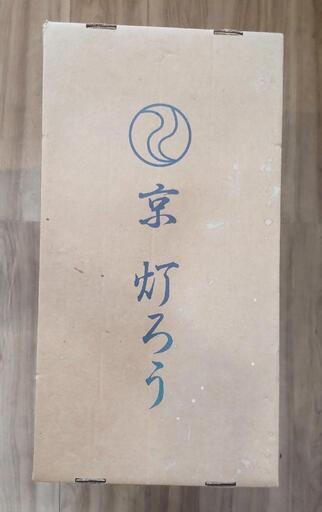 京 灯ろう